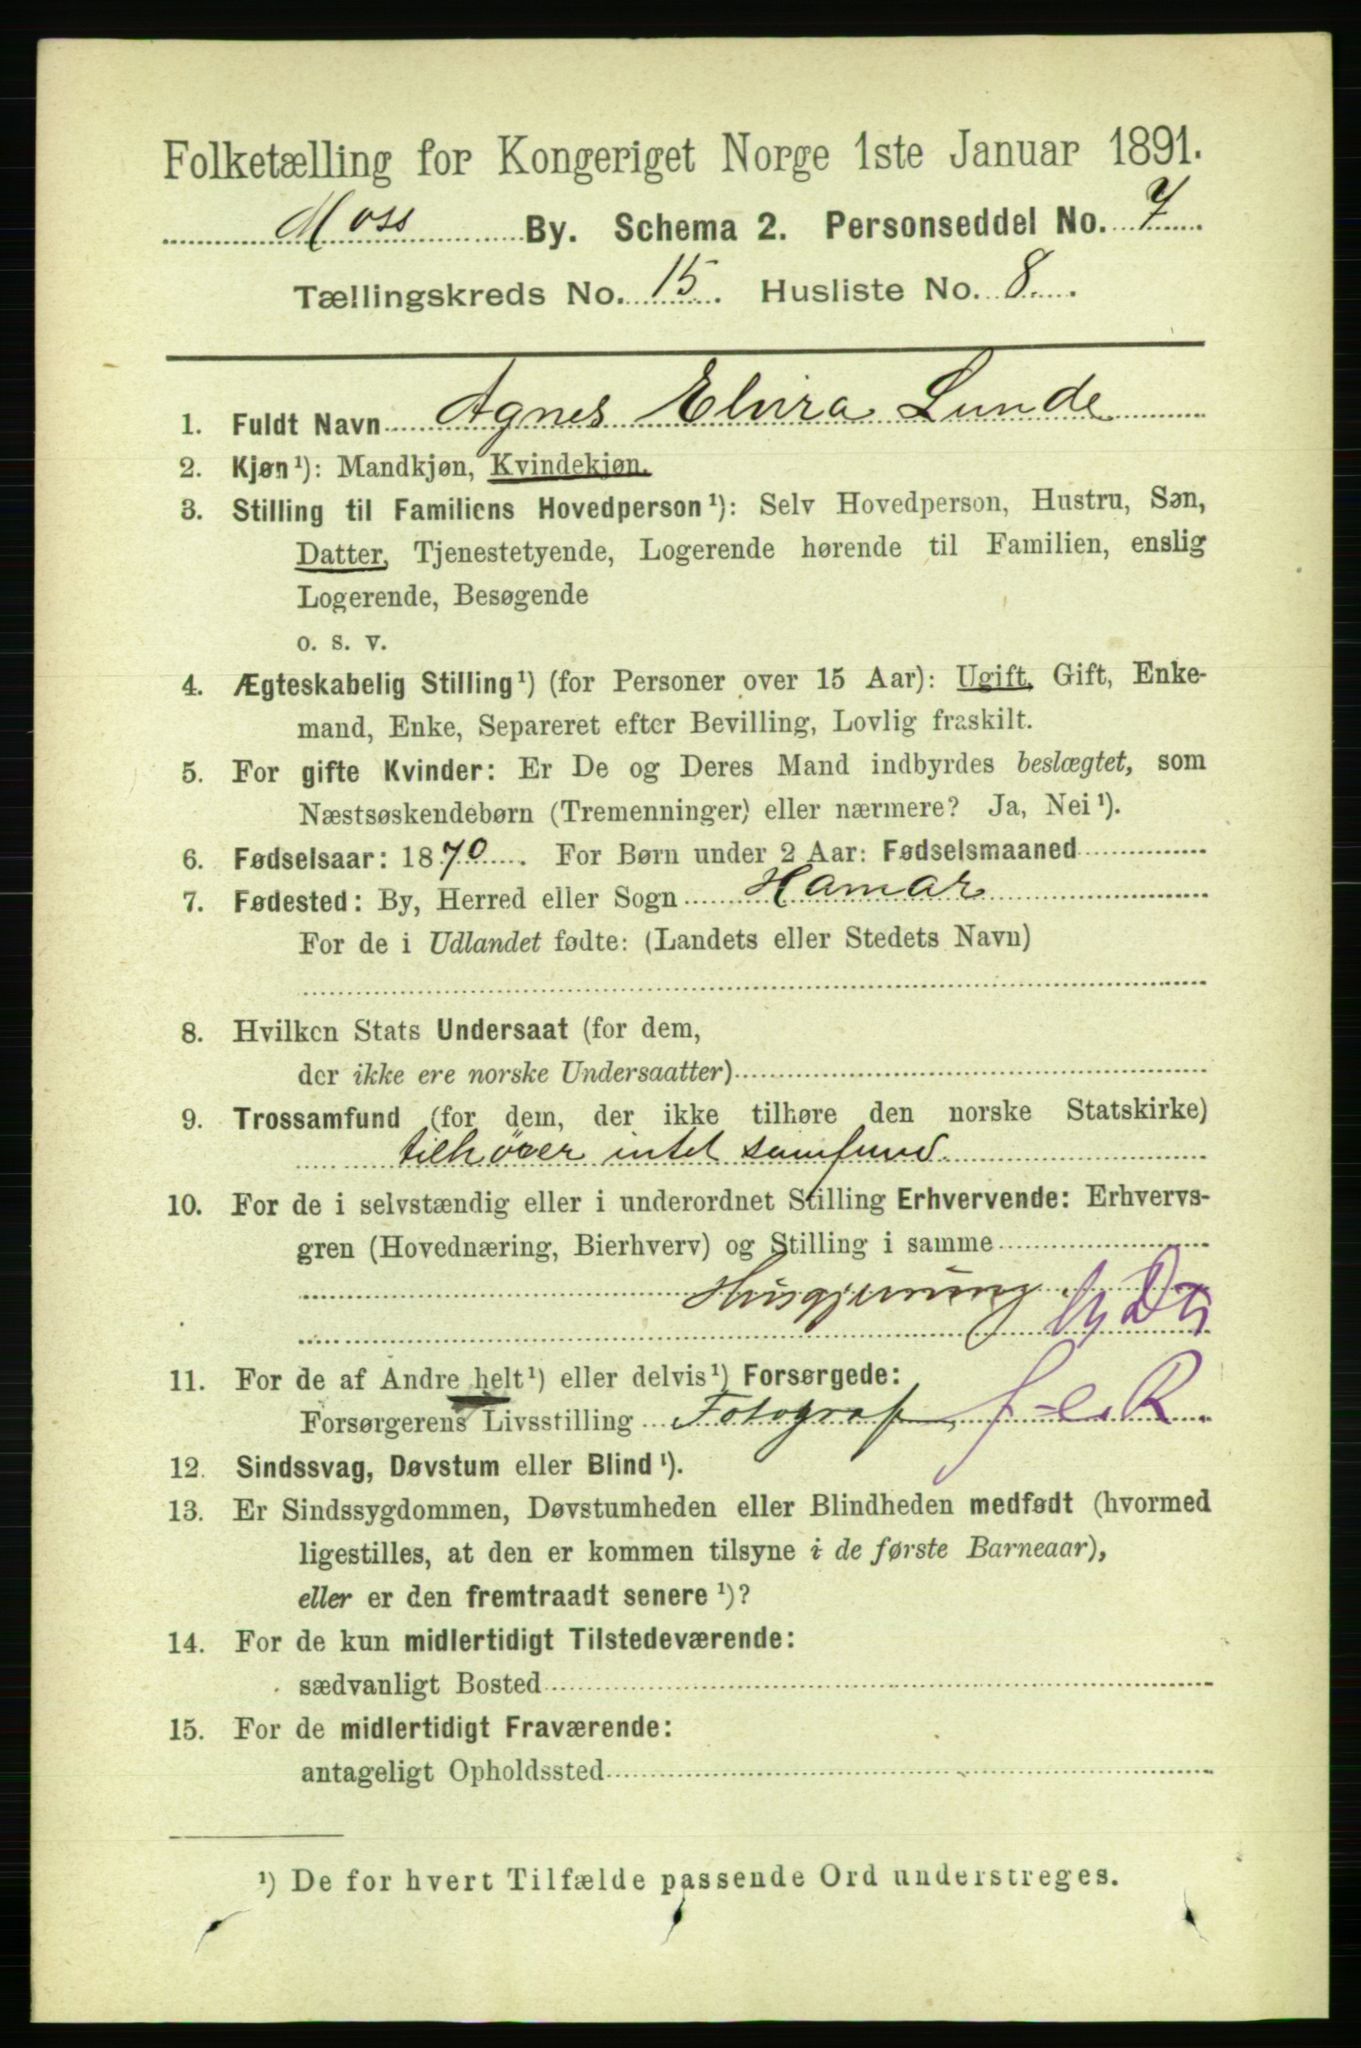 Folketælling for Kongeriget Norge 1ste Januar 1891.
Moss By. Schema 2. Personseddel No. 7
Tællingskreds No. 15. Husliste No. 8.
1. Fuldt Navn Agnes Elvira Lunde
2. Kjøn¹): Mandkjøn, Kvindekjøn.
3. Stilling til Familiens Hovedperson¹): Selv Hovedperson, Hustru, Søn,
Datter, Tjenestetyende, Logerende hørende til Familien, enslig
Logerende, Besøgende
o. s. v.
4. Ægteskabelig Stilling¹) (for Personer over 15 Aar): Ugift, Gift, Enke-
mand, Enke, Separeret efter Bevilling, Lovlig fraskilt.
5. For gifte Kvinder: Er De og Deres Mand indbyrdes beslægtet, som
Næstsøskendebørn (Tremenninger) eller nærmere? Ja, Nei¹).
6. Fødselsaar: 1870. For Børn under 2 Aar: Fødselsmaaned
7. Fødested: By, Herred eller Sogn Hamar
For de i Udlandet fødte: (Landets eller Stedets Navn)
8. Hvilken Stats Undersaat (for dem,
der ikke ere norske Undersaatter)
9. Trossamfund (for dem, der ikke tilhøre den norske Statskirke)
tilhörer intet samfund
10. For de i selvstændig eller i underordnet Stilling Erhvervende: Erhvervs-
gren (Hovednæring, Bierhverv) og Stilling i samme
Husgjerning
11. For de af Andre helt¹) eller delvis¹) Forsørgede:
Forsørgerens Livsstilling Fotograf
12. Sindssvag, Døvstum eller Blind¹).
13. Er Sindssygdommen, Døvstumheden eller Blindheden medfødt (hvormed
ligestilles, at den er kommen tilsyne i de første Barneaar),
eller er den fremtraadt senere¹)?
14. For de kun midlertidigt Tilstedeværende:
sædvanligt Bosted
15. For de midlertidigt Fraværende:
antageligt Opholdssted
¹) De for hvert Tilfælde passende Ord understreges.